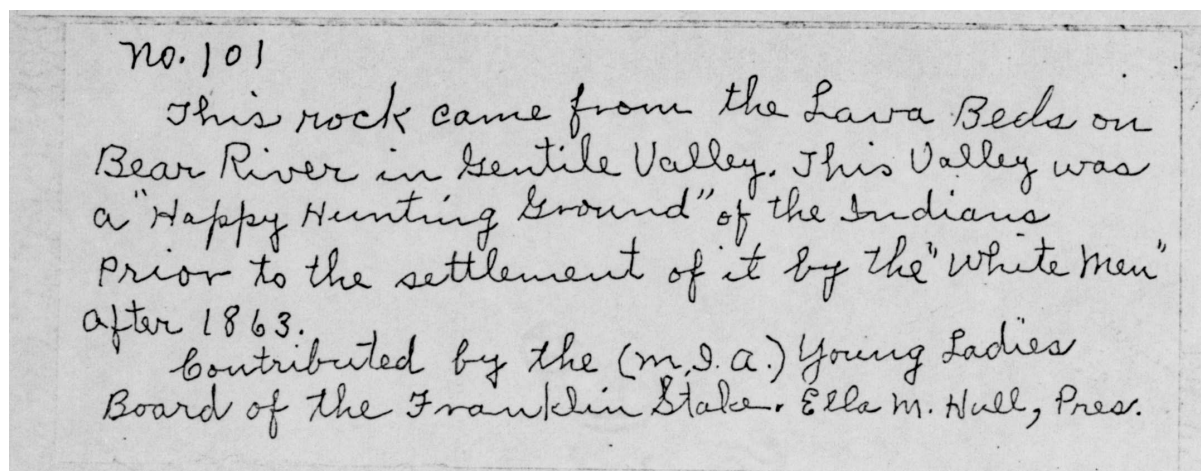 No. 101
This rock came from the Lava Beds on
Bear River in Gentile Valley. This Valley was
a "Happy Hunting Ground" of the Indians
Prior to the settlement of it by the "White Men"
after 1863.
Contributed by the (M.I.A.) Young Ladies
Board of the Franklin Stake. Ella M. Hull, Pres.